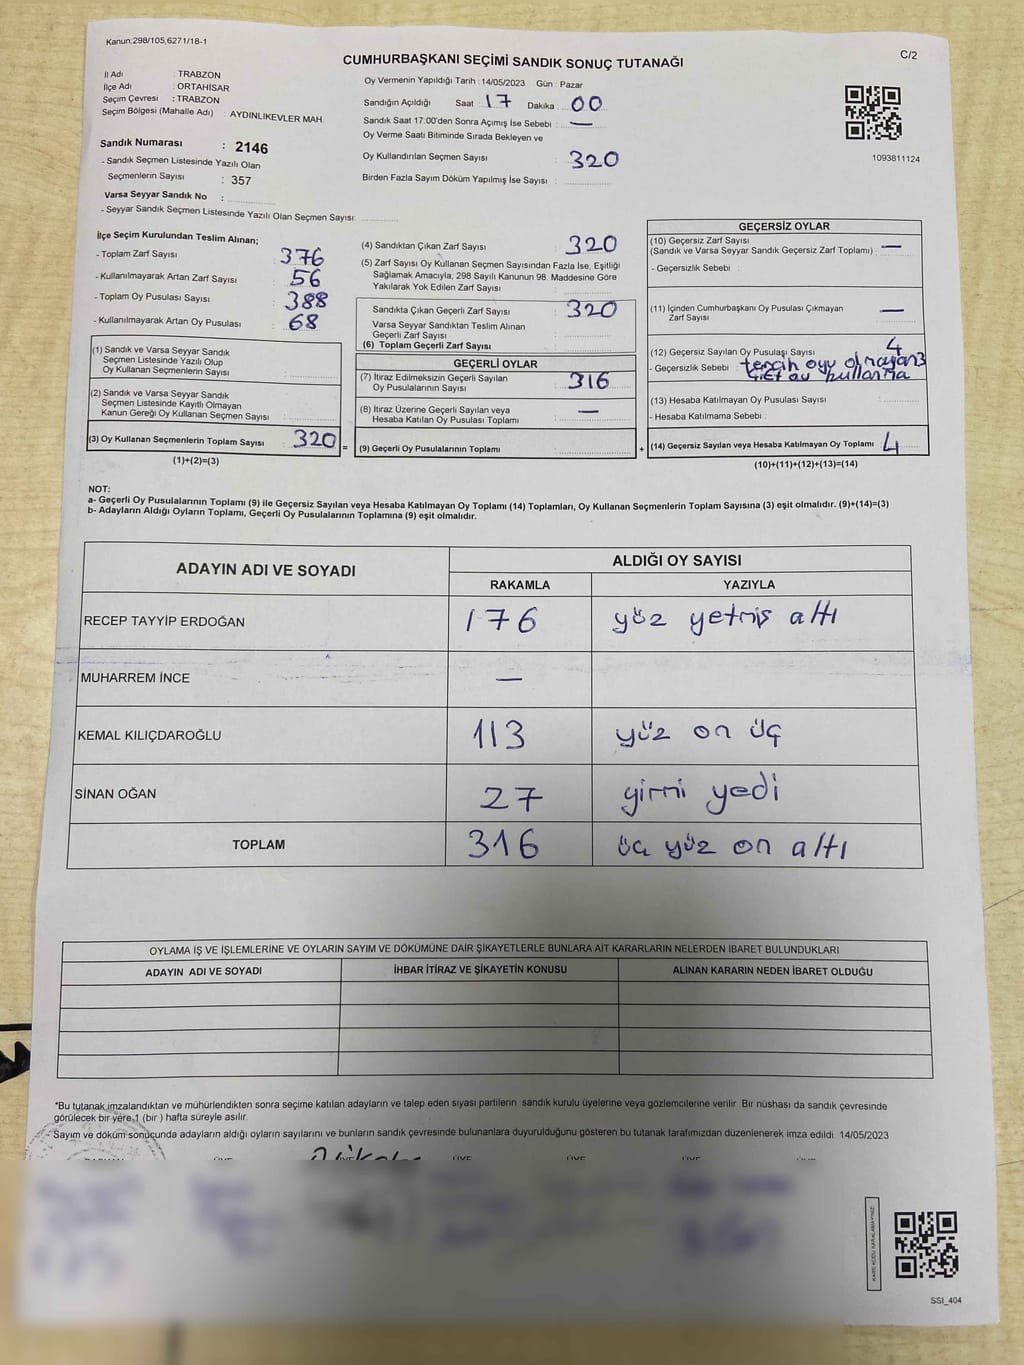 Kanun;298/105,6271/18-1
C/2
CUMHURBAŞKANI SEÇİMİ SANDIK SONUÇ TUTANAĞI
İl Adı : TRABZON
İlçe Adı : ORTAHİSAR
Seçim Çevresi : TRABZON
Seçim Bölgesi (Mahalle Adı) : AYDINLIKEVLER MAH.
Sandık Numarası : 2146
- Sandık Seçmen Listesinde Yazılı Olan
Seçmenlerin Sayısı : 357
Varsa Seyyar Sandık No :
- Seyyar Sandık Seçmen Listesinde Yazılı Olan Seçmen Sayısı:
Oy Vermenin Yapıldığı Tarih : 14/05/2023 Gün : Pazar
Sandığın Açıldığı Saat : 17 Dakika : 00
Sandık Saat 17:00'den Sonra Açımış İse Sebebi : —
Oy Verme Saati Bitiminde Sırada Bekleyen ve
Oy Kullandırılan Seçmen Sayısı : 320
Birden Fazla Sayım Döküm Yapılmış İse Sayısı :
1093811124
İlçe Seçim Kurulundan Teslim Alınan;
- Toplam Zarf Sayısı : 376
- Kullanılmayarak Artan Zarf Sayısı : 56
- Toplam Oy Pusulası Sayısı : 388
- Kullanılmayarak Artan Oy Pusulası : 68
(1) Sandık ve Varsa Seyyar Sandık
Seçmen Listesinde Yazılı Olup
Oy Kullanan Seçmenlerin Sayısı :
(2) Sandık ve Varsa Seyyar Sandık
Seçmen Listesinde Kayıtlı Olmayan
Kanun Gereği Oy Kullanan Seçmen Sayısı :
(3) Oy Kullanan Seçmenlerin Toplam Sayısı : 320 =
(1)+(2)=(3)
(4) Sandıktan Çıkan Zarf Sayısı : 320
(5) Zarf Sayısı Oy Kullanan Seçmen Sayısından Fazla İse, Eşitliği
Sağlamak Amacıyla, 298 Sayılı Kanunun 98. Maddesine Göre
Yakılarak Yok Edilen Zarf Sayısı :
Sandıkta Çıkan Geçerli Zarf Sayısı : 320
Varsa Seyyar Sandıktan Teslim Alınan
Geçerli Zarf Sayısı :
(6) Toplam Geçerli Zarf Sayısı :
GEÇERLİ OYLAR
(7) İtiraz Edilmeksizin Geçerli Sayılan
Oy Pusulalarının Sayısı : 316
(8) İtiraz Üzerine Geçerli Sayılan veya
Hesaba Katılan Oy Pusulası Toplamı : —
(9) Geçerli Oy Pusulalarının Toplamı : +
GEÇERSİZ OYLAR
(10) Geçersiz Zarf Sayısı
(Sandık ve Varsa Seyyar Sandık Geçersiz Zarf Toplamı) : —
- Geçersizlik Sebebi :
(11) İçinden Cumhurbaşkanı Oy Pusulası Çıkmayan
Zarf Sayısı : —
(12) Geçersiz Sayılan Oy Pusulası Sayısı : 4
- Geçersizlik Sebebi : tercih oyu olmayan 3
(13) Hesaba Katılmayan Oy Pusulası Sayısı :
- Hesaba Katılmama Sebebi :
(14) Geçersiz Sayılan veya Hesaba Katılmayan Oy Toplamı : 4
(10)+(11)+(12)+(13)=(14)
NOT:
a- Geçerli Oy Pusulalarının Toplamı (9) ile Geçersiz Sayılan veya Hesaba Katılmayan Oy Toplamı (14) Toplamları, Oy Kullanan Seçmenlerin Toplam Sayısına (3) eşit olmalıdır. (9)+(14)=(3)
b- Adayların Aldığı Oyların Toplamı, Geçerli Oy Pusulalarının Toplamına (9) eşit olmalıdır.
ADAYIN ADI VE SOYADI ALDIĞI OY SAYISI
RAKAMLA YAZIYLA
RECEP TAYYİP ERDOĞAN 176 yüz yetmiş altı
MUHARREM İNCE —
KEMAL KILIÇDAROĞLU 113 yüz on üç
SİNAN OĞAN 27 yirmi yedi
TOPLAM 316 üç yüz on altı
OYLAMA İŞ VE İŞLEMLERİNE VE OYLARIN SAYIM VE DÖKÜMÜNE DAİR ŞİKAYETLERLE BUNLARA AİT KARARLARIN NELERDEN İBARET BULUNDUKLARI
ADAYIN ADI VE SOYADI İHBAR İTİRAZ VE ŞİKAYETİN KONUSU ALINAN KARARIN NEDEN İBARET OLDUĞU
*Bu tutanak imzalandıktan ve mühürlendikten sonra seçime katılan adayların ve talep eden siyasi partilerin sandık kurulu üyelerine veya gözlemcilerine verilir. Bir nüshası da sandık çevresinde
görülecek bir yere 1 (bir) hafta süreyle asılır.
- Sayım ve döküm sonucunda adayların aldığı oyların sayılarını ve bunların sandık çevresinde bulunanlara duyurulduğunu gösteren bu tutanak tarafımızdan düzenlenerek imza edildi. 14/05/2023
KARE KODU KARALAMAYINIZ!
SSI_404